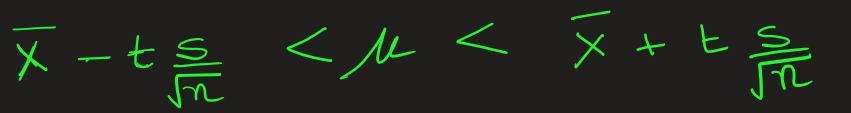 x̄ - t s/√n < μ < x̄ + t s/√n